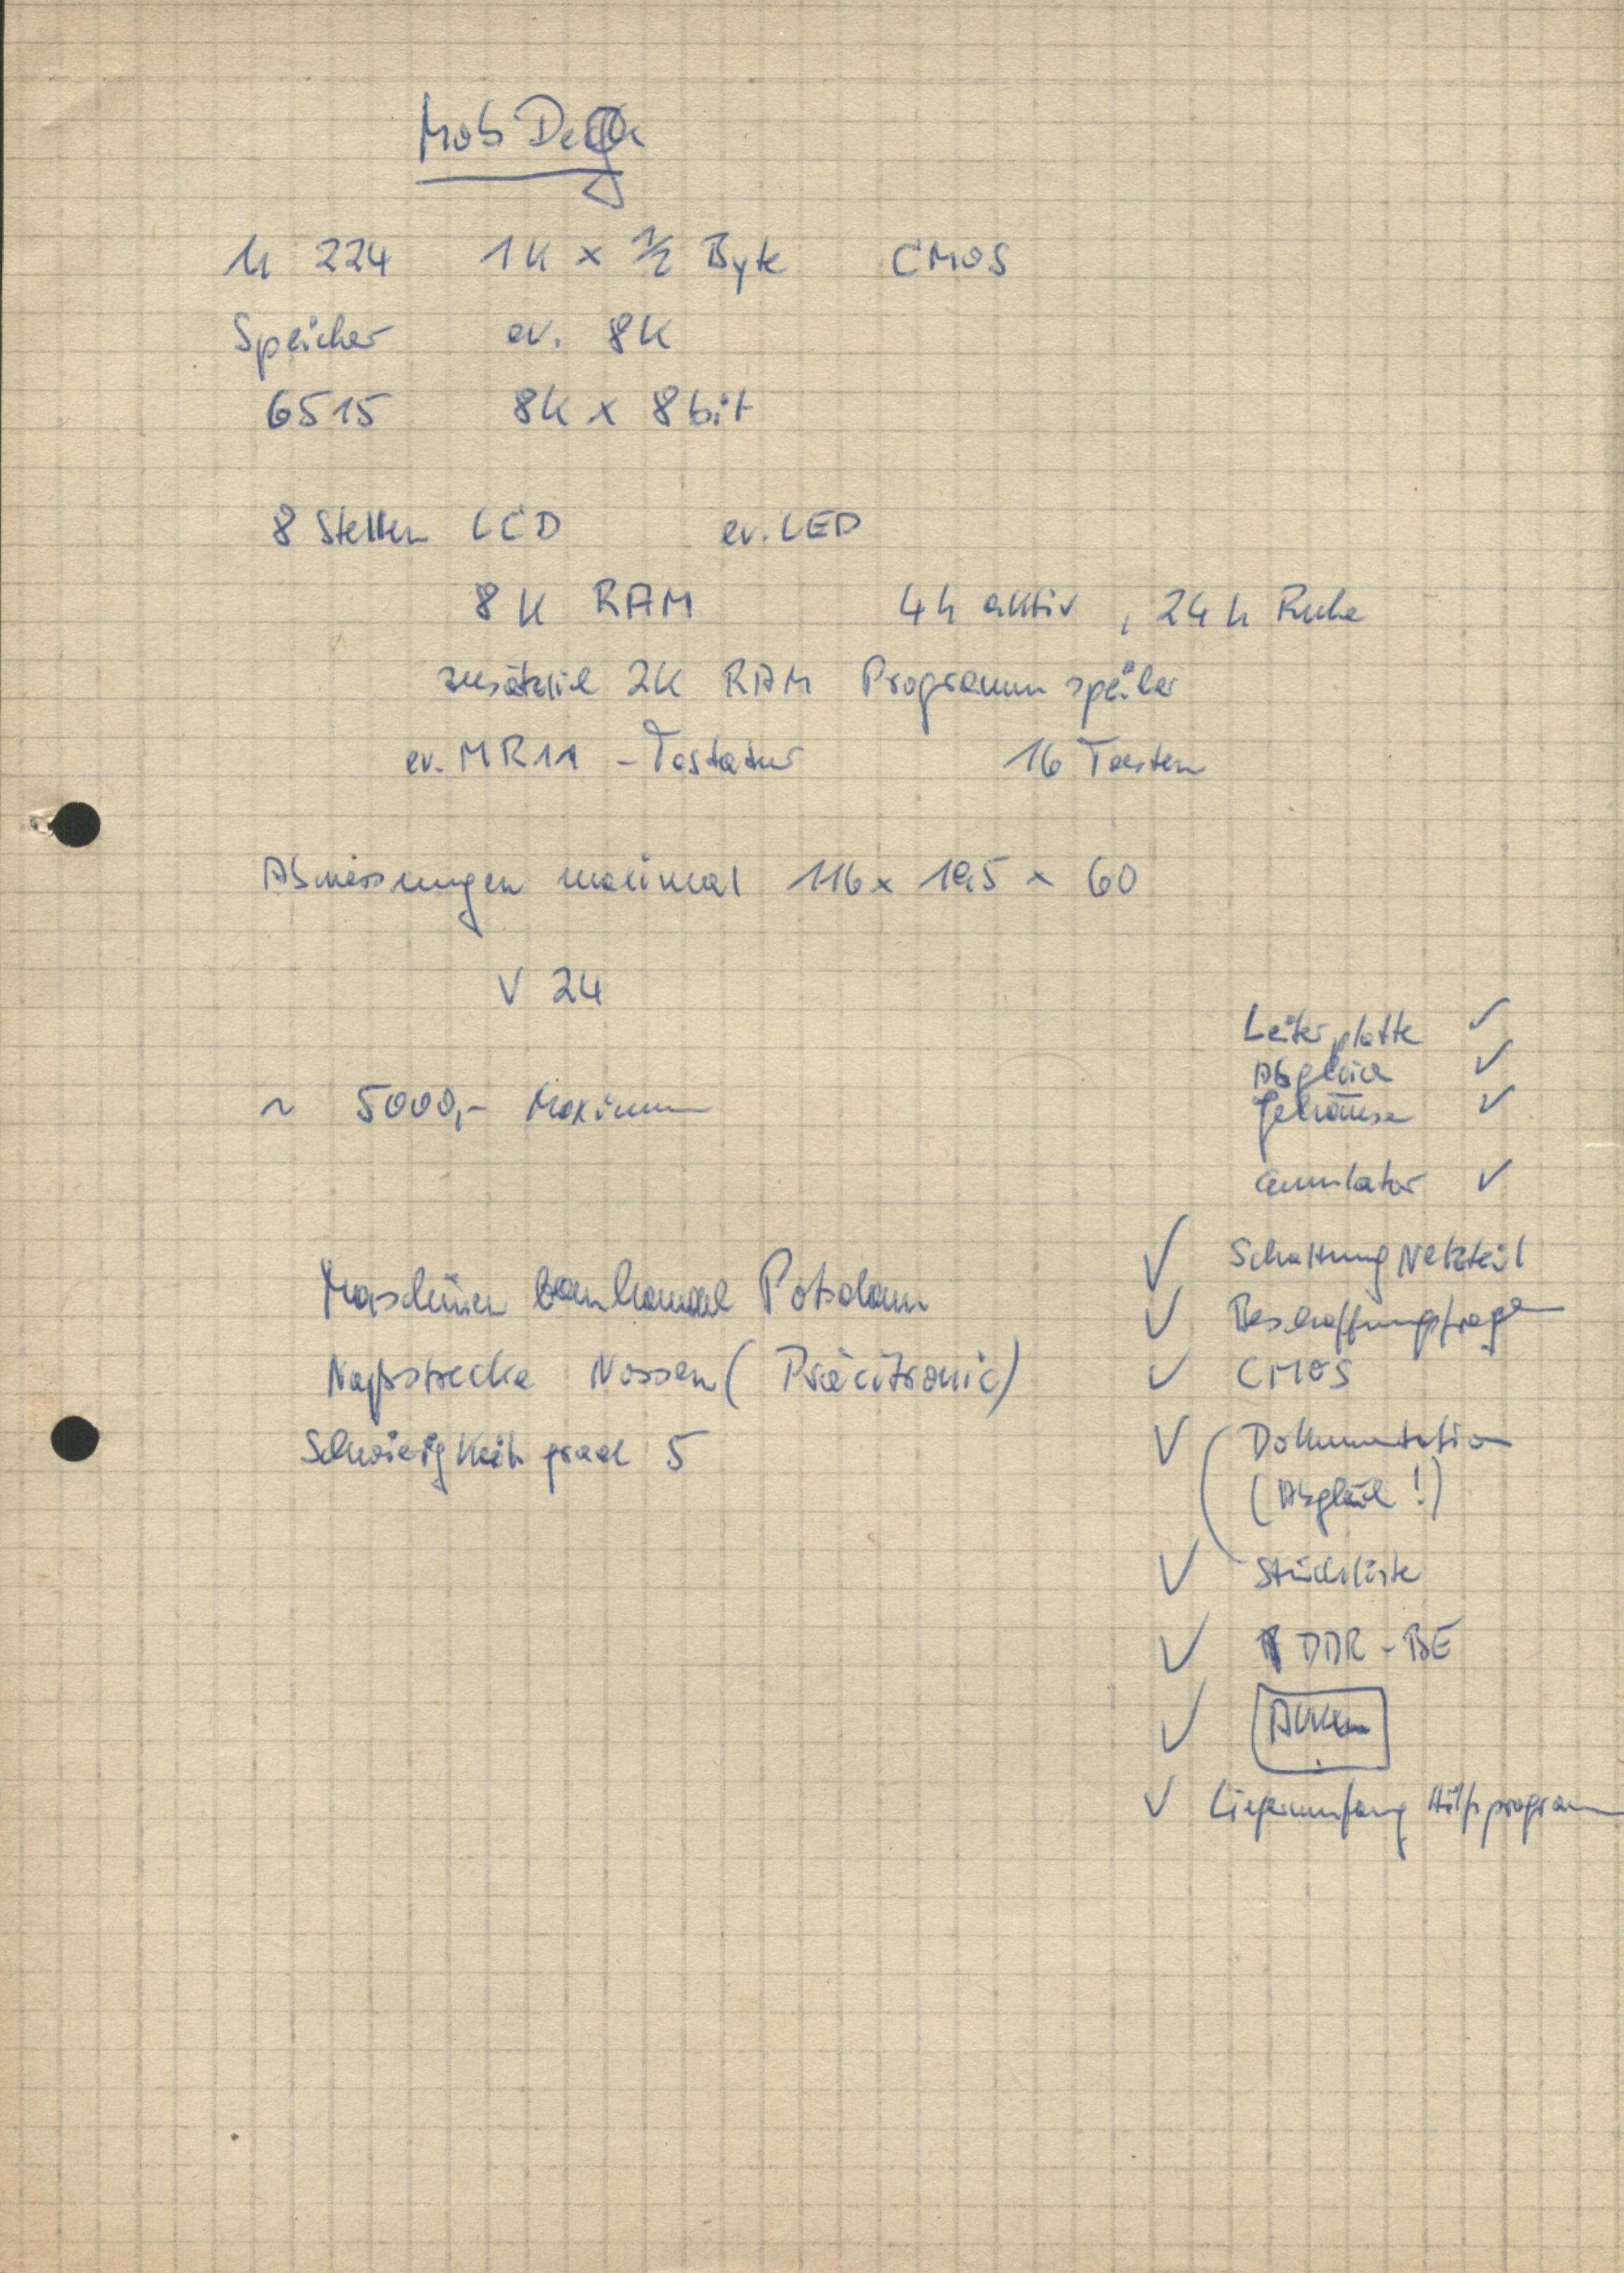 Mob
U 224 1K x 1/2 Byte CMOS
Speicher ev. 8K
6515 8K x 8bit
8 Stellen LCD ev. LED
8K RAM 4h aktiv, 24h Ruhe
zusätzlich 2K RAM Programmspeicher
ev. MR11 - Tastatur 16 Tasten
Abmessungen maximal 116 x 19,5 x 60
V 24
~ 5000,- Maximum
Maschinenbauhandel Potsdam
Nossen (Präcitronic)
Schwierigkeitsgrad 5
Leiterplatte ✓
Abgleich ✓
Gehäuse ✓
emulator ✓
✓ Schaltung Netzteil
✓ Beschaffungsfragen
✓ CMOS
✓ ( Dokumentation
(Abgleich !)
✓ Stückliste
✓ DDR - BE
✓ Akku
✓ Lieferumfang Hilfsprogramm